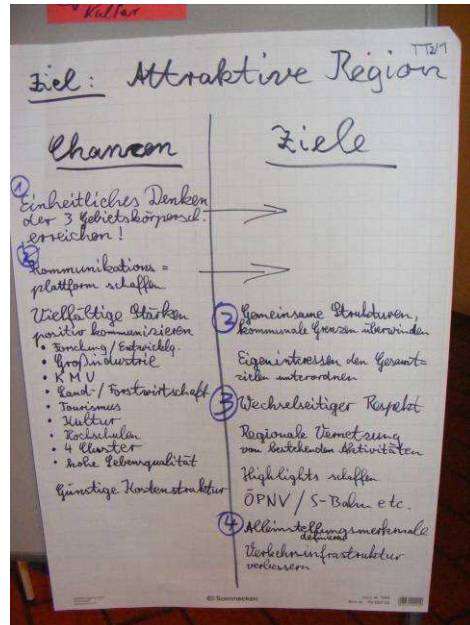 Kultur
TT2/1
Ziel: Attraktive Region
Chancen
① Einheitliches Denken
der 3 Gebietskörpersch.
erreichen!
② Kommunikations=
plattform schaffen
Vielfältige Stärken
positiv kommunizieren
• Forschung/Entwicklg.
• Großindustrie
• KMU
• Land-/Forstwirtschaft
• Tourismus
• Kultur
• Hochschulen
• 4 Cluster
• hohe Lebensqualität
Günstige Kostenstruktur
Ziele
② Gemeinsame Strukturen,
kommunale Grenzen überwinden
Eigeninteressen den Gesamt=
zielen unterordnen
③ Wechselseitiger Respekt
Regionale Vernetzung
von bestehenden Aktivitäten
Highlights schaffen
ÖPNV / S-Bahn etc.
④ Alleinstellungsmerkmale
definieren
Verkehrsinfrastruktur
verbessern
© Soennecken